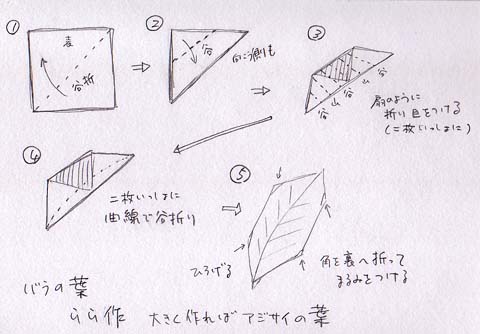 ①
表
谷折
②
谷
向こう側も
③
谷
山
谷
山
谷
扇のように
折り目をつける
(二枚いっしょに)
④
二枚いっしょに
曲線で谷折り
⑤
ひろげる
角を裏へ折って
まるみをつける
バラの葉
らら作 大きく作ればアジサイの葉